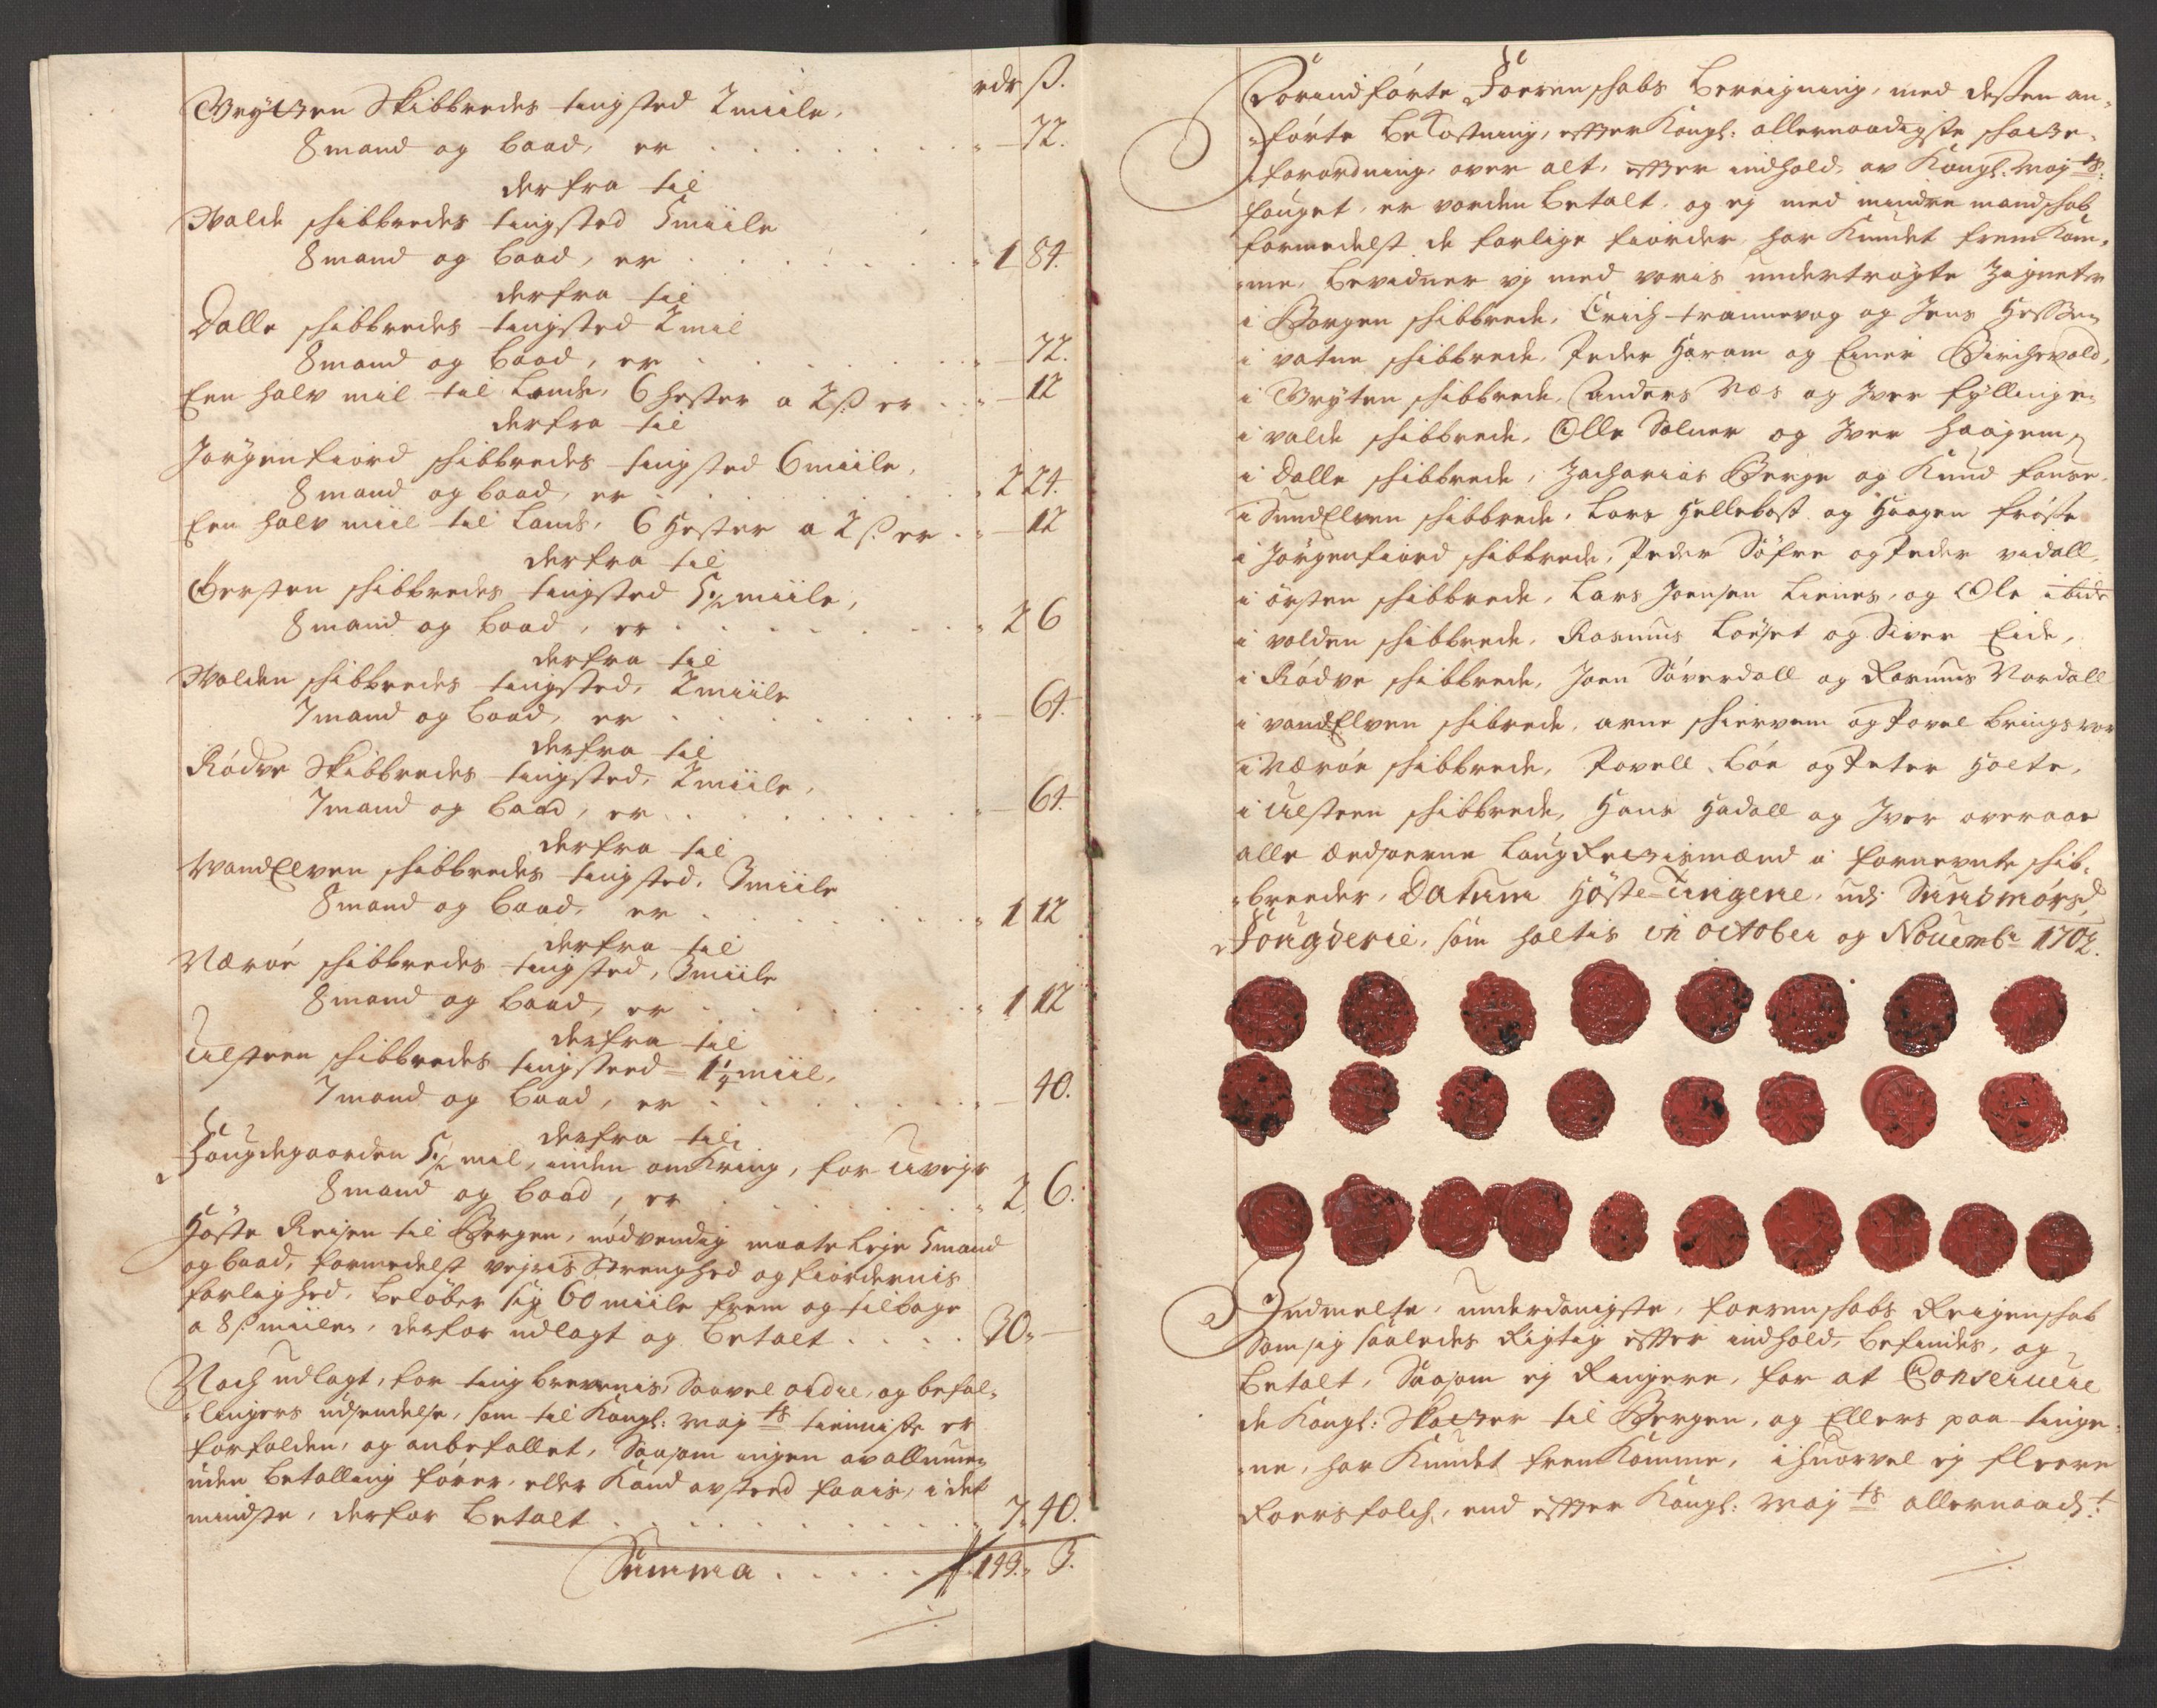 rdr ß.
Brytten Skibbredes tingsted 2 miile,
8 mand og baad, er . . . . . . „ — 72.
derfra til
Walde schibbredes tingsted 5 miile
8 mand og baad, er . . . . . . „ 1 84.
derfra til
Dalle schibbredes tingsted 2 mil
8 mand og baad, er . . . . . . „ — 72.
Een halv mil til Lands, 6 hester a 2 ß er . . „ — 12
derfra til
Jorgenfiord schibbredes tingsted 6 miile,
8 mand og baad, er . . . . . . „ 2 24.
Een halv miil til Lands, 6 Hester a 2 ß er . „ — 12
derfra til
Øersten schibbredes tingsted 5½ miile,
8 mand og baad, er . . . . . . „ 2 6
derfra til
Wolden schibbredes tingsted, 2 miile
7 mand og baad, er . . . . . . „ — 64.
derfra til
Rødve Skibbredes tingsted, 2 miile,
7 mand og baad, er . . . . . . „ — 64.
derfra til
WandElven schibbredes tingsted, 3 miile
8 mand og baad, er . . . . . . „ 1 12
derfra til
Nærøe schibbredes tingsted, 3 miile
8 mand og baad, er . . . . . . „ 1 12
derfra til
Ulsteen schibbredes tingsteed 1¼ miil,
7 mand og baad, er . . . . . . „ — 40.
derfra til
Fougdegaarden 5½ mil, uden omkring, for uvejr
8 mand og baad, er . . . . . . „ 2 6.
Høste Reisen til Bergen, nødvendig maate leje 5 mand
og baad, formedelst vejris Strenghed og fiordernis
farlighed, beløber sig 60 miile frem og tilbage
a 8 ß miilen, derfor udlagt og betalt . . . . 30 „ —
Noch udlagt, for tingbrevenis, saavel ordre, og befal-
lingers udsendelse, som til Kongl: May ts tienniste er
forfalden, og anbefallet, saasom ingen av allmuen
uden betalling fører, eller kand avsteed faais, i det
mindste, derfor betalt . . . . . . „ 7 40.
Summa . . . . . 149 „ 3.
Forindførte Foerenschabs bereigning, med dessen an-
førte bekostning, effter Kongl: allernaadigste schatze-
forordning, over alt, effter indhold, av Kongl: May ts:
fouget, er vorden betalt, og ej med mindre mandschab
formedelst de farlige fiorder, har kundet fremkom-
me, bevidner vj med voris undertrøgte Zigneter
i Borgen schibbrede, Erich trannevog og Jens Hessen
i vatne schibbrede, Peder Haram og Einer Birchevold,
i Brytten schibbrede, anders Næs og Iver fyllingen
i valde schibbrede, Olle Solnør og Iver Haagem,
i Dalle schibbrede, Zacharias Berge og Knud fause,
i SundElven schibbrede, Lars Hellebost og Haagen frøste
i Jørgenfiord schibbrede, Peder Søfre og Peder vidall,
i ørsten schibbrede, Lars Joensen Lienes, og Ole ibid
i volden schibbrede, Rasmus Løeset og Siver Eide,
i Rødve schibbrede, Joen Søverdall og Rasmus Nordall
i vandElven schibrede, arne schiervem og Povel bringsvor
i Nærøe schibbrede, Povell Bøe og Peter Holte,
i Ulsteen schibbrede, Hans Hadall og Iver overaae
alle ædsoerne Laugrettismænd i fornevnte schib-
breeder, Datum Høste-Tingene, udj Sundmørs
Fougderie, som holtis in October og Novemb: 1702.
Indmelte, underdanigste, foerenschabs Reigenschab
som sig saaledes Rigtig effter indhold, befindes, og
betalt, saasom ej Ringere, for at Conservere
de Kongl: Skatter til Bergen, og Ellers paa tinge-
ne, har kundet fremkomme, ihvorvel ej fleere
Roersfolch, end effter Kongl: May ts allernaads t